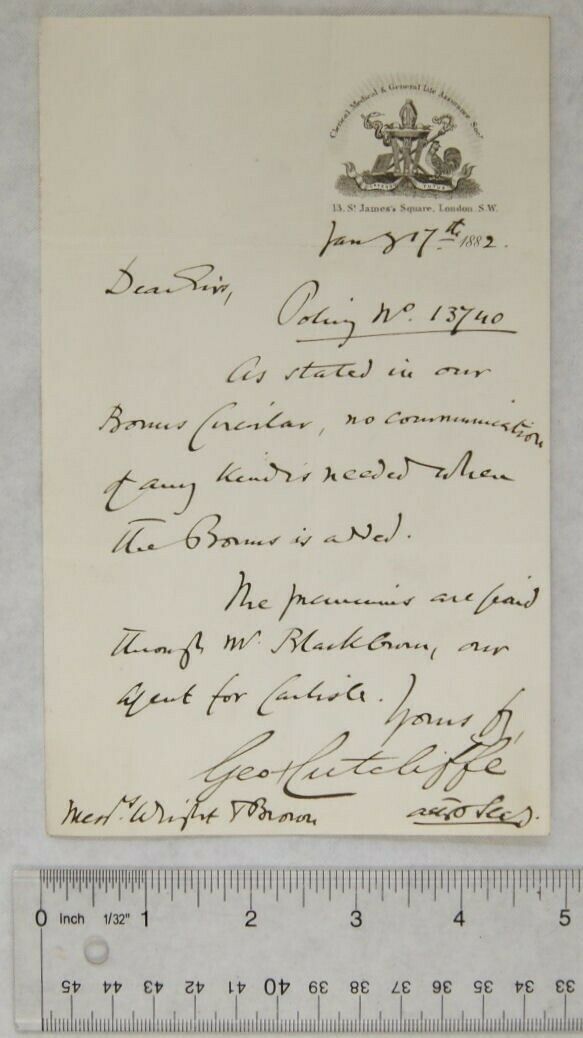 Clerical Medical & General Life Assurance Socy.
13, St. James's Square, London S.W.
Jany 17th 1882.
Dear Sirs,
Policy No. 13740
As stated in our
Bonus Circular, no communication
of any kind is needed when
the Bonus is added.
The premiums are paid
through Mr Blackburn, our
agent for Carlisle.
Yours fy,
Geo Cutcliffe
Messrs. Wright & Brown
0 Inch 1/32" 1 2 3 4 5
45 44 43 42 41 40 39 38 37 36 35 34 33